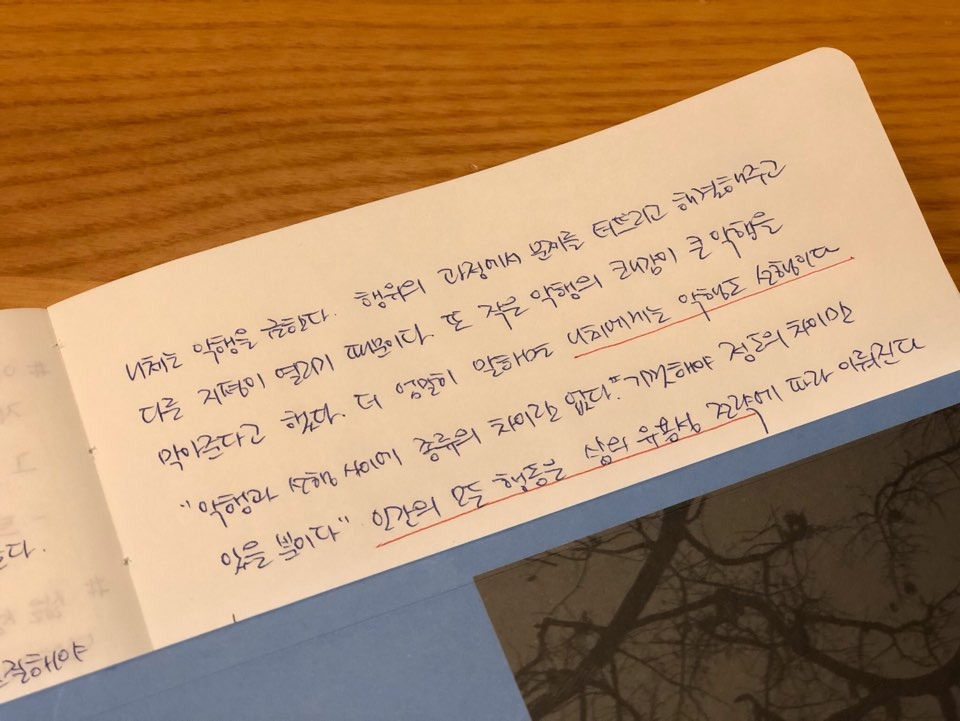 니체는 악행을 권한다. 행위의 과정에서 문제를 터뜨리고 해결해주고
다른 지평이 열리기 때문이다. 또 작은 악행의 쾌감이 큰 악행을
막아준다고 했다. 더 엄밀히 말하면 니체에게는 악행도 선행이다
"악행과 선행 사이에 종류의 차이란 없다. 기껏해야 정도의 차이만
있을 뿐이다" 인간의 모든 행동은 삶의 유용성 전략에 따라 이뤄진다